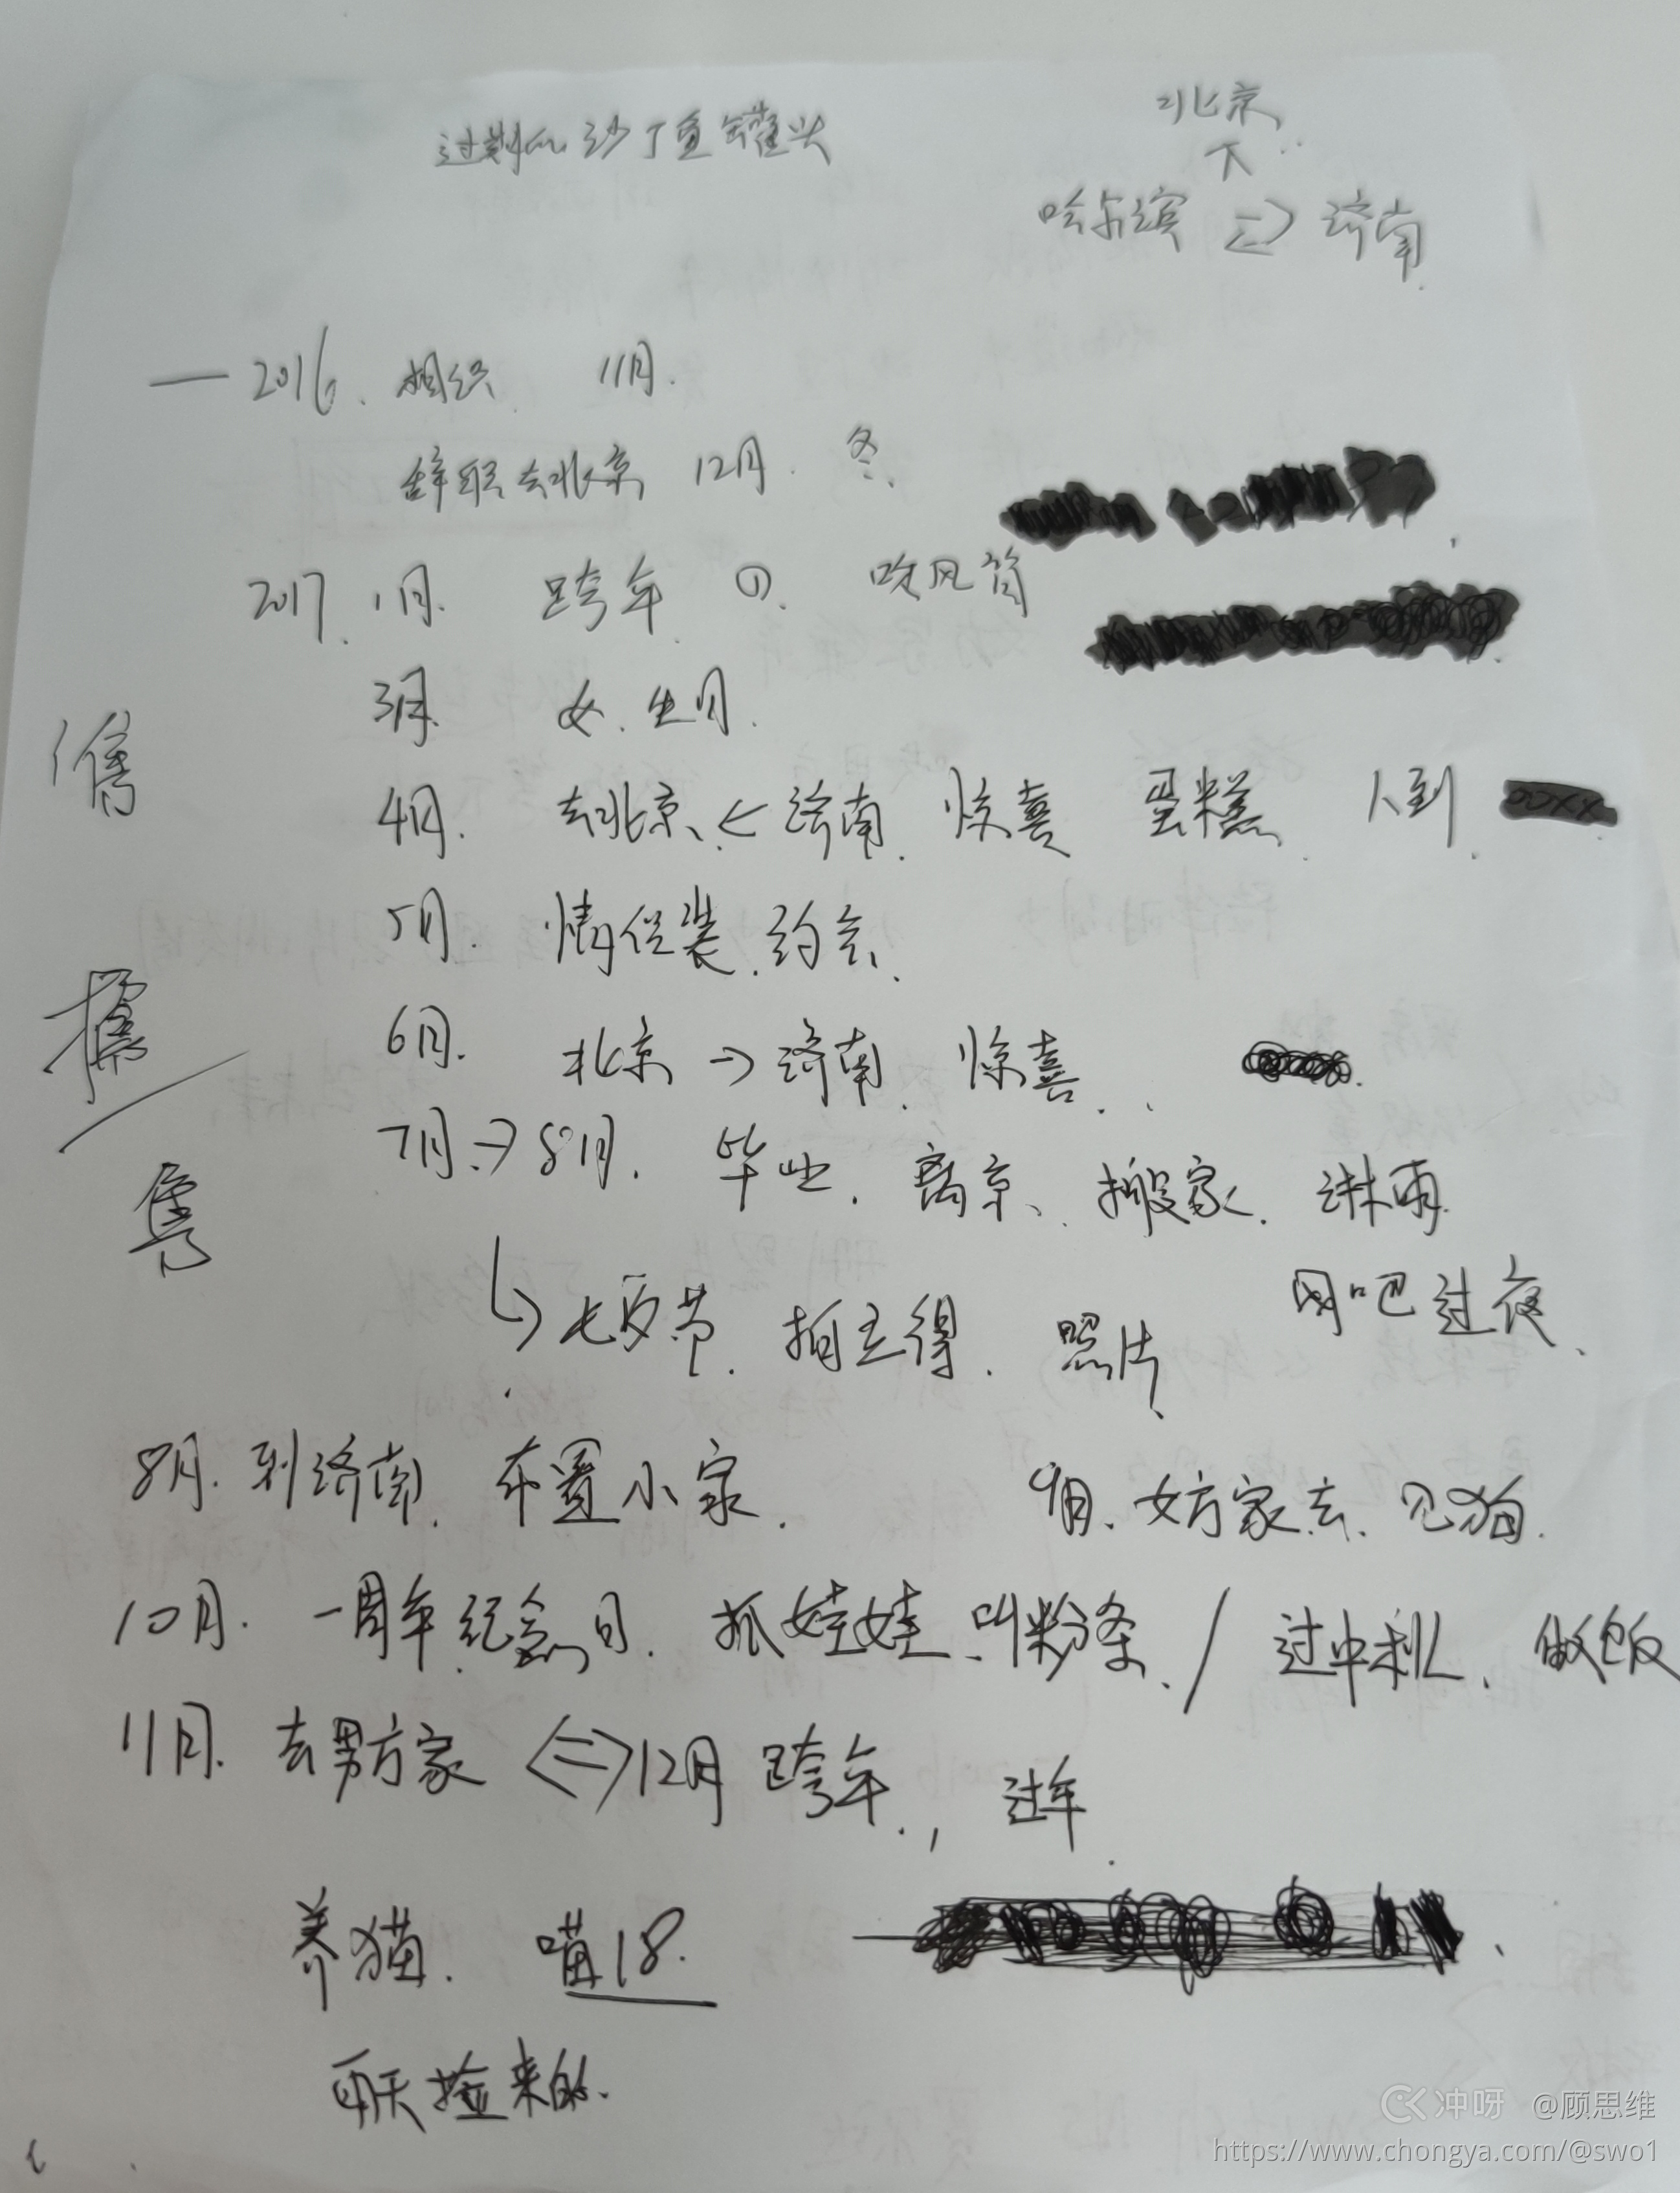 过期的沙丁鱼罐头
北京
哈尔滨 ⇄ 济南
— 2016. 相识 11月.
辞职去北京 12月. 冬.
2017. 1月. 跨年 ①. 吹风筒
3月. 女. 生日.
售
4月. 去北京. ← 济南. 惊喜 蛋糕. 人到.
5月. 情侣装. 约会.
6月. 北京 → 济南. 惊喜.
7月 → 8月. 毕业. 离京. 搬家. 淋雨.
隽
网吧过夜.
↳ 七夕节. 拍立得. 照片.
8月. 到济南. 布置小家.
9月. 女方家去. 见狗.
10月. 一周年纪念日. 抓娃娃. 叫粉条. / 过中秋. 做饭
11月. 去男方家 <=> 12月 跨年., 过年.
养猫. 喵18.
雨天捡来的.
冲呀 @顾思维
https://www.chongya.com/@swo1